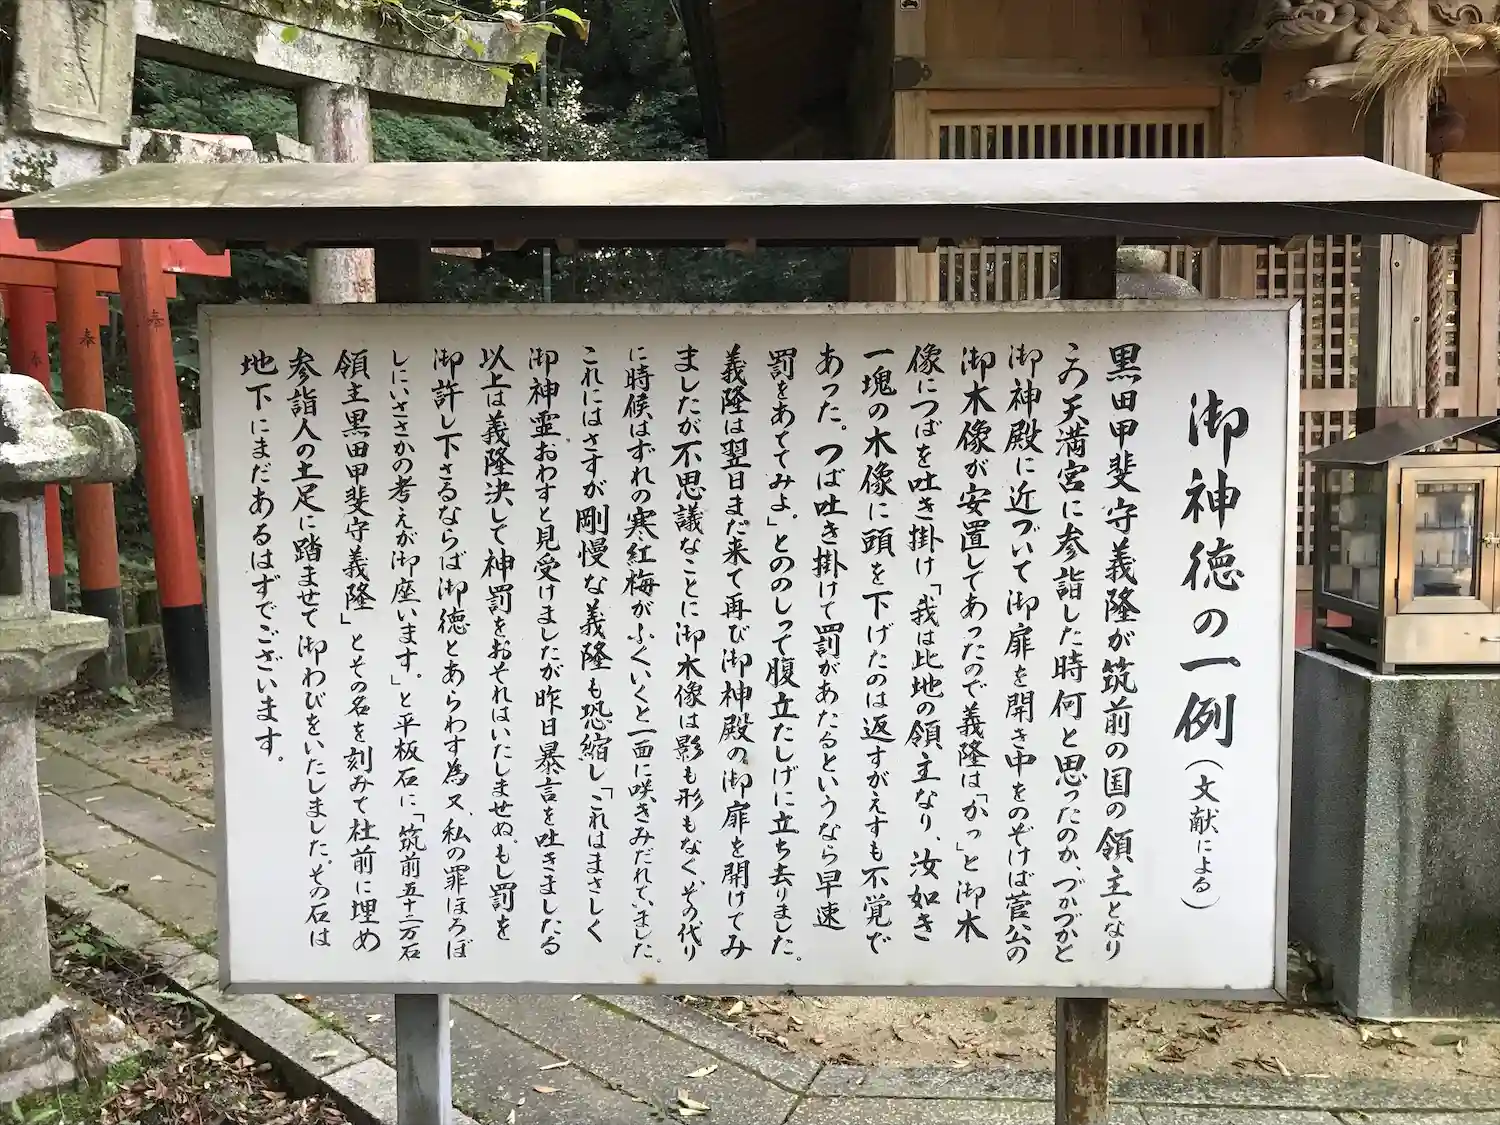 御神徳の一例(文献による)
黒田甲斐守義隆が筑前の国の領主となり
この天満宮に参詣した時何と思ったのか、づかづかと
御神殿に近づいて御扉を開き中をのぞけば菅公の
御木像が安置してあったので義隆は「かっ」と御木
像につばを吐き掛け「我は此地の領主なり、汝如き
一塊の木像に頭を下げたのは返すがえすも不覚で
あった。つば吐き掛けて罰があたるというなら早速
罰をあててみよ」とののしって腹立たしげに立ち去りました。
義隆は翌日まだ来て再び御神殿の御扉を開けてみ
ましたが不思議なことに御木像は影も形もなく、その代り
に時候はずれの寒紅梅がふくいくと一面に咲きみだれていました。
これにはさすが剛慢な義隆も恐縮し、「これはまさしく
御神霊おわすと見受けましたが昨日暴言を吐きましたる
以上は義隆決して神罰をおそれはいたしませぬ。もし罰を
御許し下さるならば御徳とあらわす為又、私の罪ほろぼ
しにいささかの考えが御座います。」と平板石に「筑前五十二万石
領主黒田甲斐守義隆」とその名を刻みて社前に埋め
参詣人の土足に踏ませて御わびをいたしました。その石は
地下にまだあるはずでございます。
奉
奉
奉